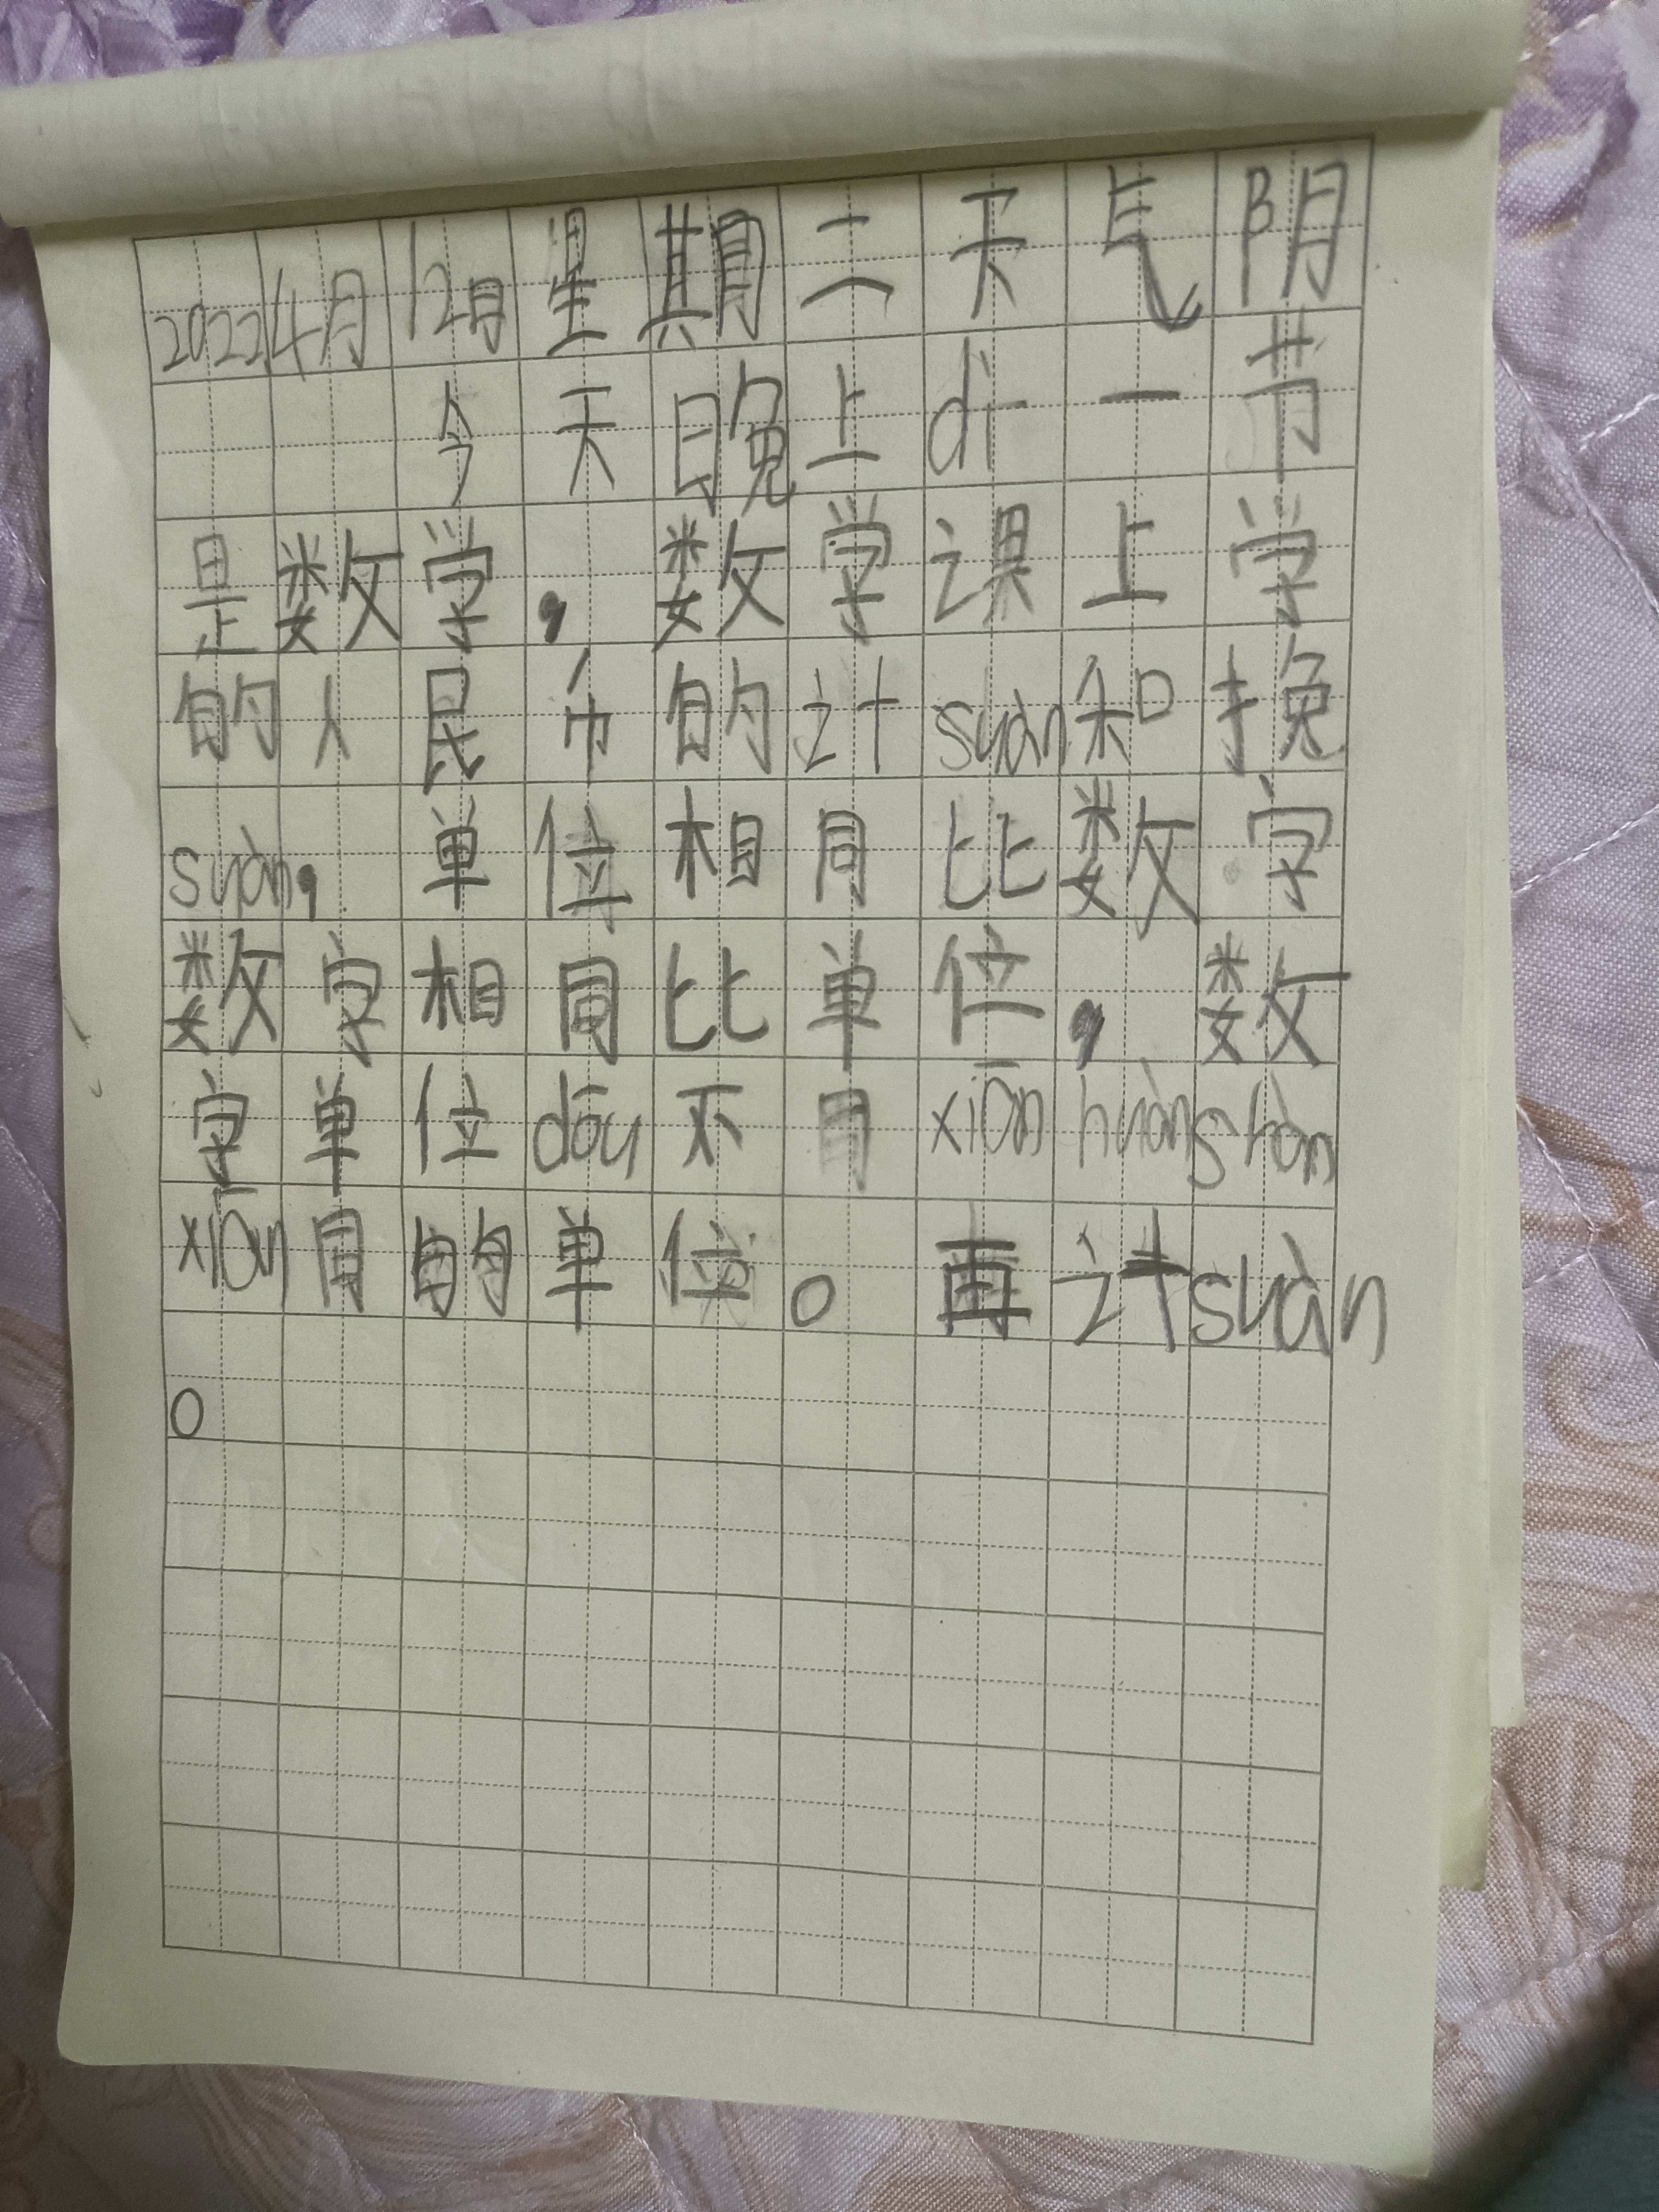 2022.4月12日星期二天气阴
今天晚上dì一节
是数学，数学课上学
的人民币的计suàn和挽
suàn，单位相同比数字
数字相同比单位，数
字单位dōu不同xiān huàng hàn
xiān同的单位。再计suàn
。